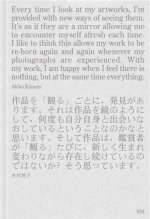 Every time I look at my artworks, I'm
provided with new ways of seeing them.
It's as if they are a mirror allowing me
to encounter myself afresh each time.
I like to think this allows my work to be
re-born again and again whenever my
photographs are experienced. With
my work, I am happy when I feel there is
nothing, but at the same time everything.
Akiko Kimura
作品を「観る」ごとに、発見があ
ります。それは作品を鏡のように
して、何度も自分自身と出会いな
おしているということなのかなと
思います。そして作品は、鑑賞者
が「観る」たびに、新しく生まれ
変わりながら存在し続けているの
ではないか？そう思っています。
木村朗子